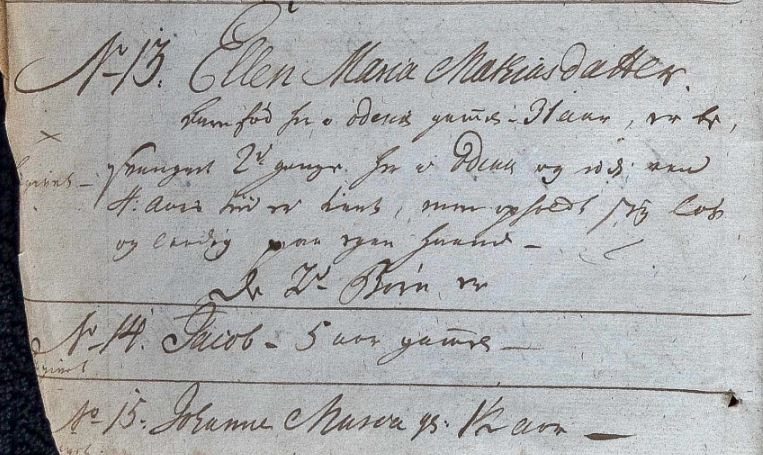 No 13. Ellen Maria Matiasdatter.
barnfød her i Odense gammel 31 aar, er be,
svanget 2de gange her i Odense og
4. aars tid er tient, men opholdt sig løs
og leedig paa egen haand –
de 2de Børn er
No 14. Jacob – 5 aar gammel –
No 15. Johanne Maria g. 1/2 aar –